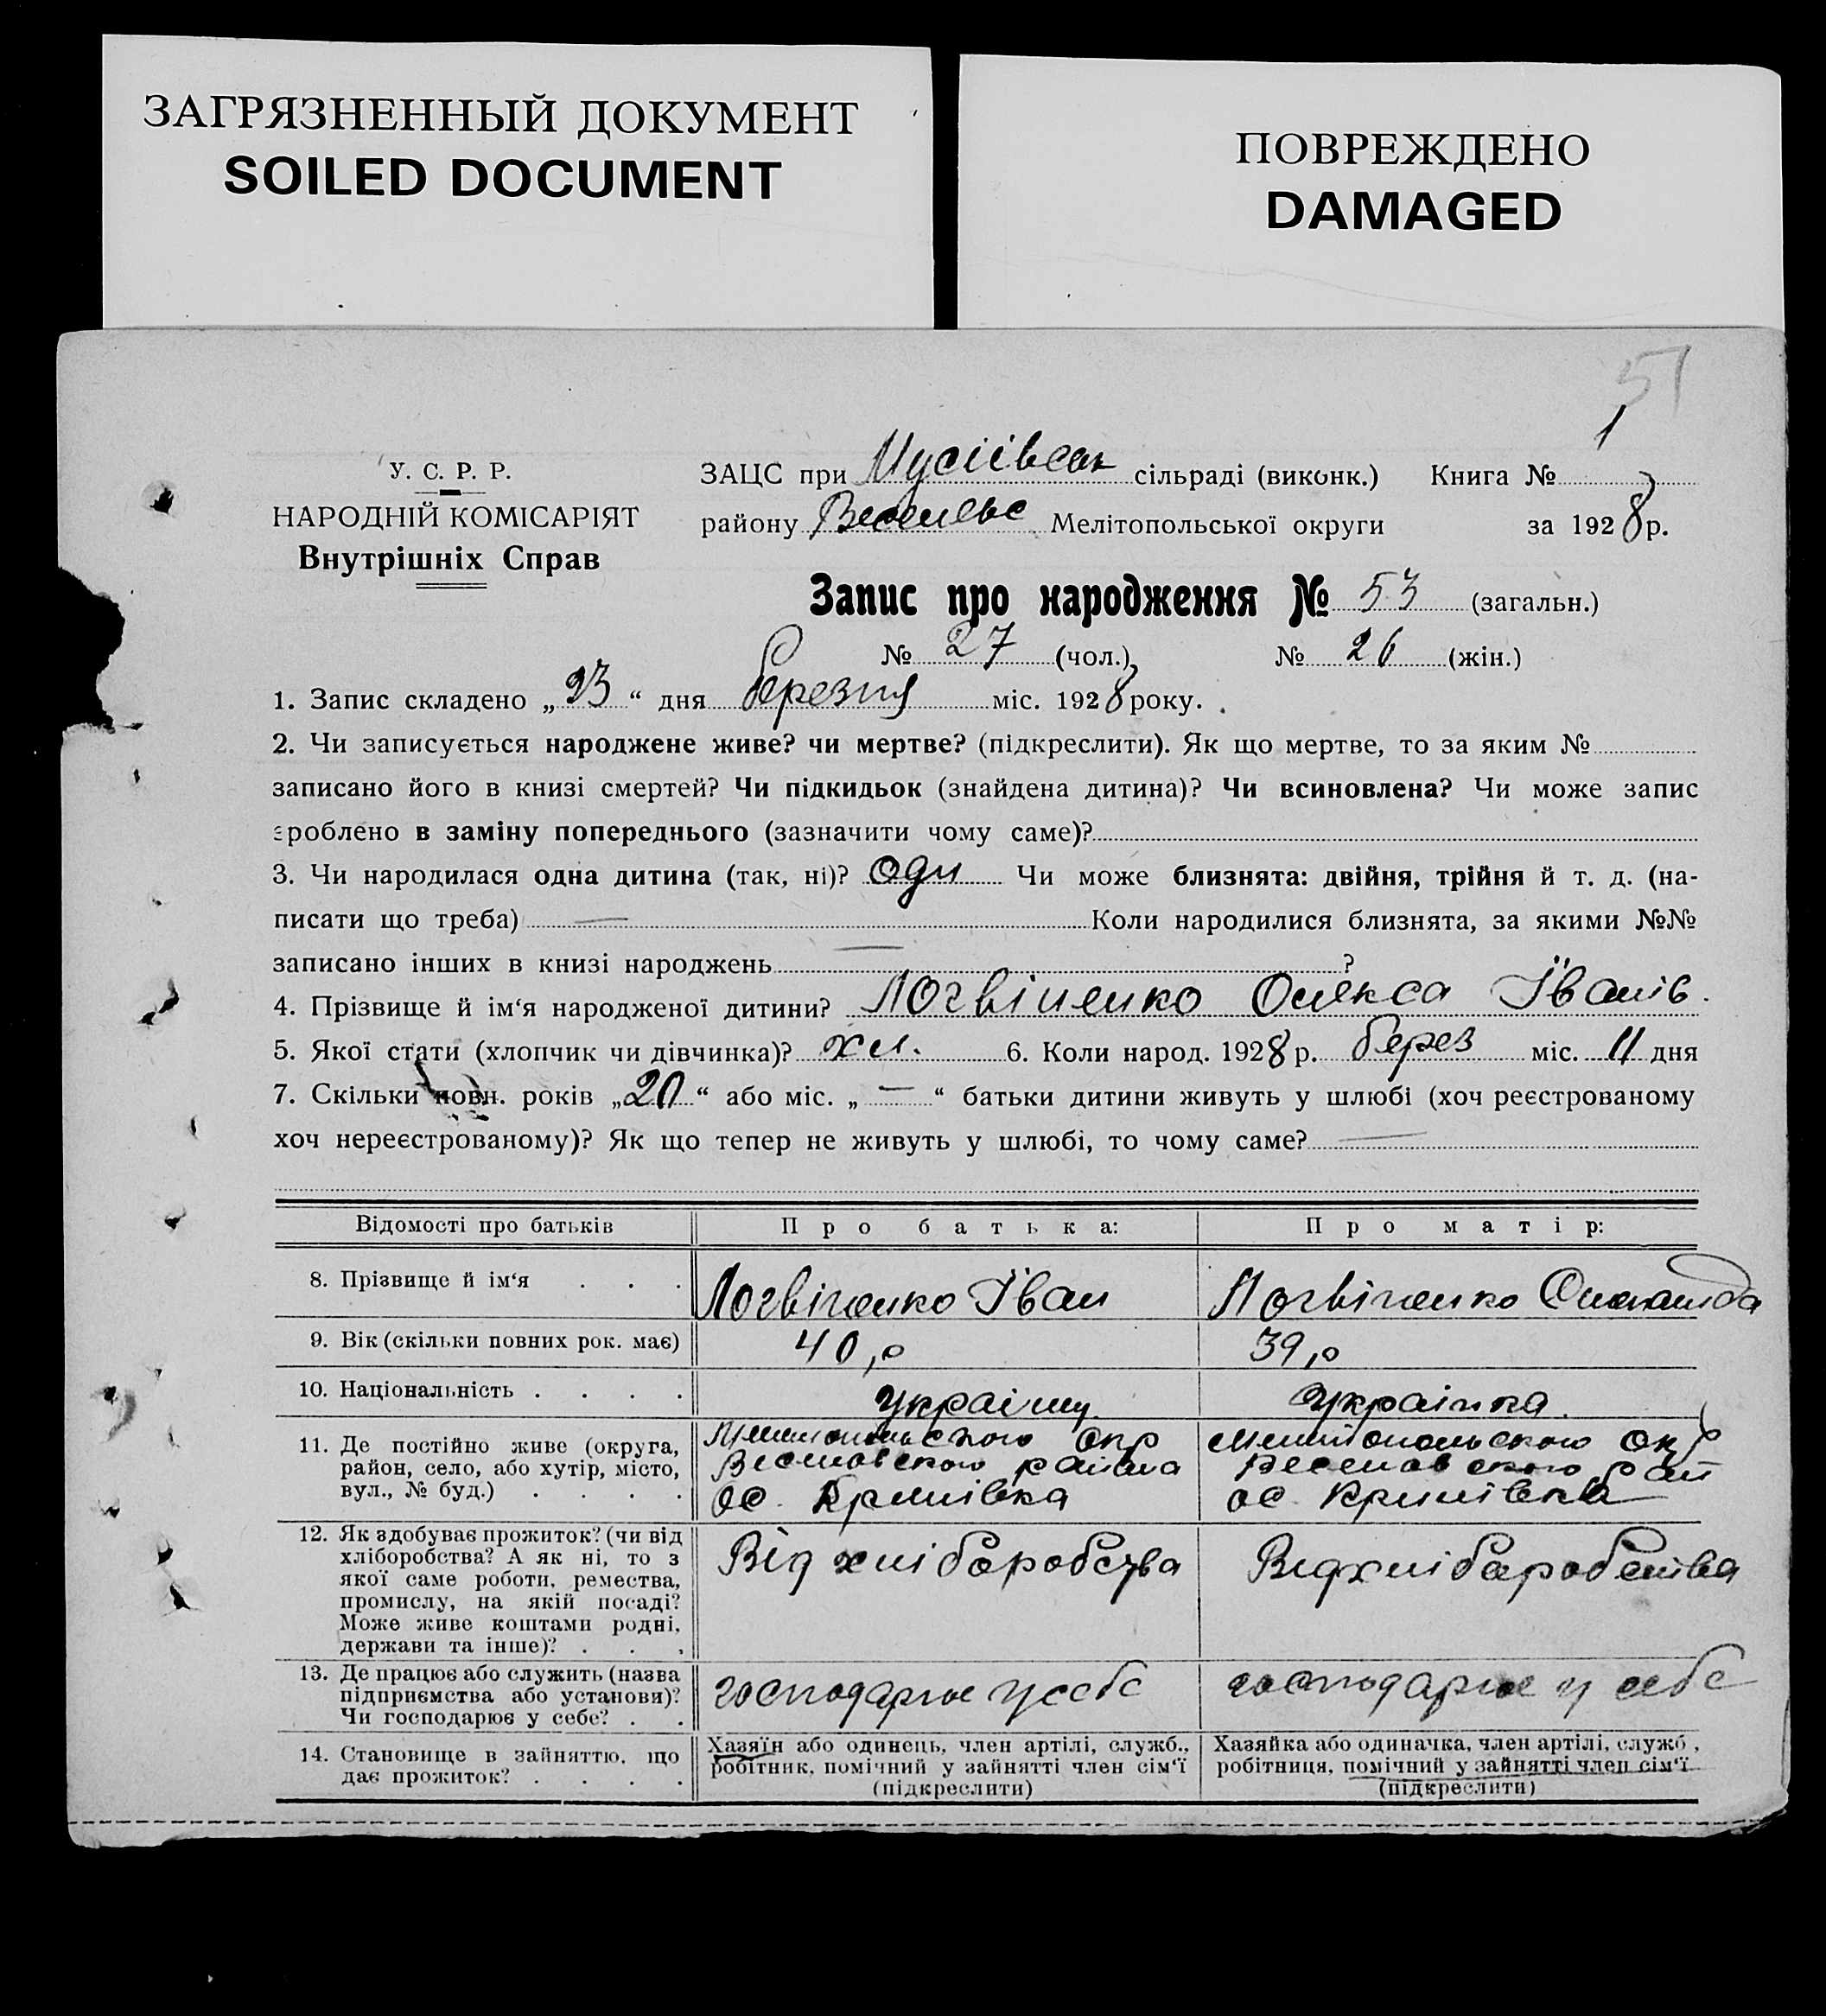 ЗАГРЯЗНЕННЫЙ ДОКУМЕНТ
SOILED DOCUMENT
ПОВРЕЖДЕНО
DAMAGED
51
1
У. С. Р. Р.
НАРОДНІЙ КОМІСАРІЯТ
Внутрішніх Справ
ЗАЦС при Мусіївськ сільраді (виконк.) Книга №
району Веселовс Мелітопольської округи за 1928 р.
Запис про народження № 53 (загальн.)
№ 27 (чол.) № 26 (жін.)
1. Запис складено „23“ дня березня міс. 1928 року.
2. Чи записується народжене живе? чи мертве? (підкреслити). Як що мертве, то за яким №
записано його в книзі смертей? Чи підкидьок (знайдена дитина)? Чи всиновлена? Чи може запис
зроблено в заміну попереднього (зазначити чому саме)?
3. Чи народилася одна дитина (так, ні)? одн Чи може близнята: двійня, трійня й т. д. (на-
писати що треба) — Коли народилися близнята, за якими №№
записано інших в книзі народжень — ?
4. Прізвище й ім‘я народженої дитини? Логвіненко Олекса Іванів.
5. Якої стати (хлопчик чи дівчинка)? хл. 6. Коли народ. 1928 р. берез міс. 11 дня
7. Скільки повн. років „20“ або міс. „—“ батьки дитини живуть у шлюбі (хоч реєстрованому
хоч нереєстрованому)? Як що тепер не живуть у шлюбі, то чому саме? —
Відомості про батьків Про батька: Про матір:
8. Прізвище й ім‘я . . . Логвіненко Іван Логвіненко
9. Вік (скільки повних рок. має) 40,0 39,0
10. Національність . . . . Україну Українка.
11. Де постійно живе (округа,
район, село, або хутір, місто,
вул., № буд.) . . . .
Мелитопольского Окр
Веселовского района
ос. Крилівка
Мелитопольского Окр
Веселовского рай
ос. Крилівка
12. Як здобуває прожиток? (чи від
хліборобства? А як ні, то з
якої саме роботи, ремества,
промислу, на якій посаді?
Може живе коштами родні,
держави та інше)? . . .
Від хліборобства
Від хліборобства
13. Де працює або служить (назва
підприємства або установи)?
Чи господарює у себе? . .
господарює у себе
господарює у себе
14. Становище в зайняттю, що
дає прожиток? . . . .
Хазяїн або одинець, член артілі, служб.,
робітник, помічний у зайнятті член сім‘ї
(підкреслити)
Хазяйка або одиначка, член артілі, служб.,
робітниця, помічний у зайнятті член сім‘ї
(підкреслити)